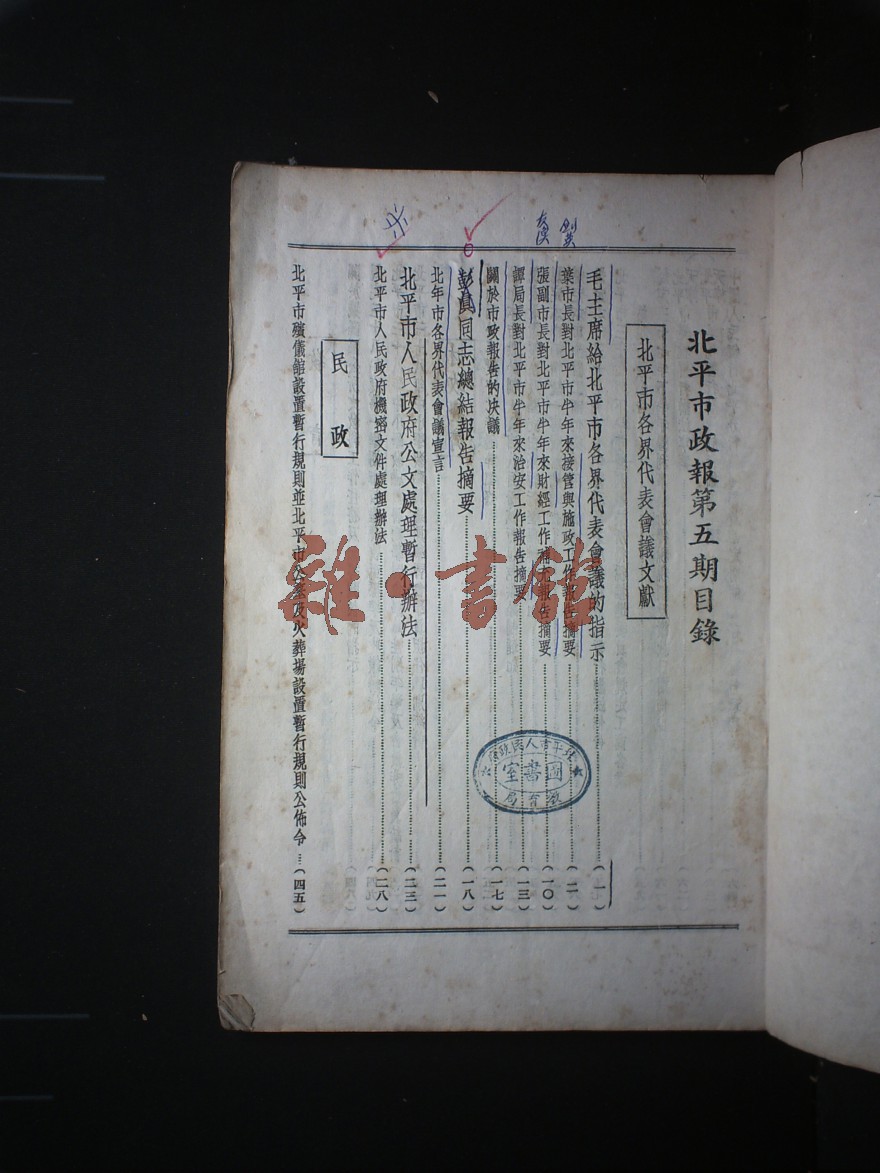 北平市政報第五期目錄
北平市各界代表會議文獻
毛主席給北平市各界代表會議的指示……(一)
葉市長對北平市半年來接管與施政工作報告摘要……(二)
張副市長對北平市半年來財經工作補充報告摘要……(一〇)
譚局長對北平市半年來治安工作報告摘要……(一三)
關於市政報告的決議……(一七)
彭真同志總結報告摘要……(一八)
北年市各界代表會議宣言……(二一)
北平市人民政府公文處理暫行辦法……(二三)
北平市人民政府機密文件處理辦法……(二八)
民政
北平市殯儀館設置暫行規則並北平市公墓及火葬場設置暫行規則公佈令…(四五)
北平市人民政府
圖書室
教育局
雜·書館